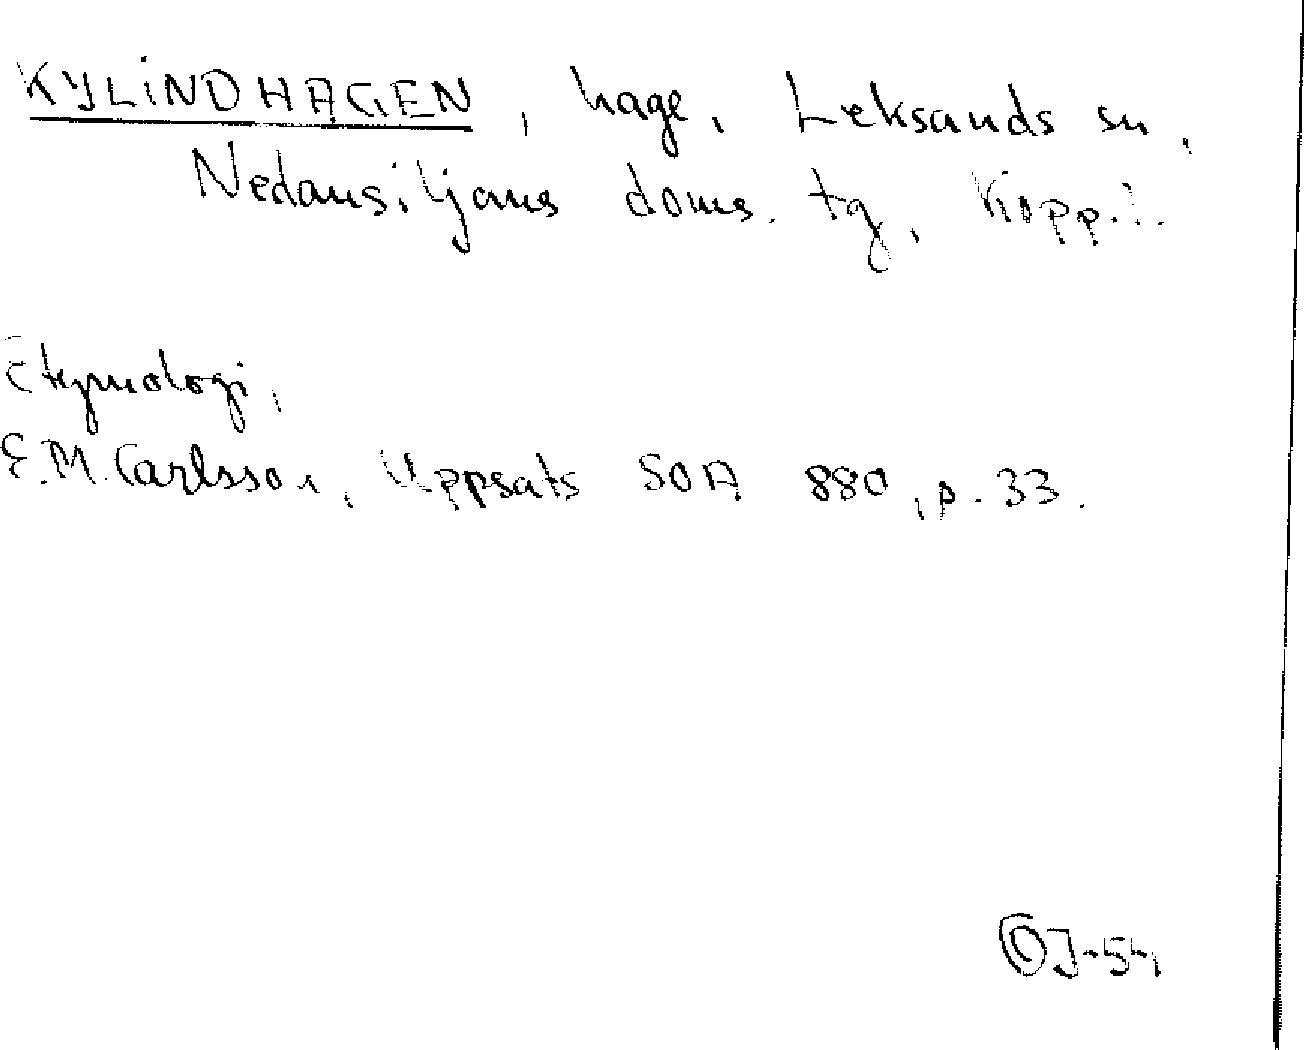 KYLINDHAGEN, hage, Leksands sn,
Nedansiljans doms. tg, Kopp. l.
Etymologi,
E.M. Carlsson, Uppsats SOA 880, p. 33.